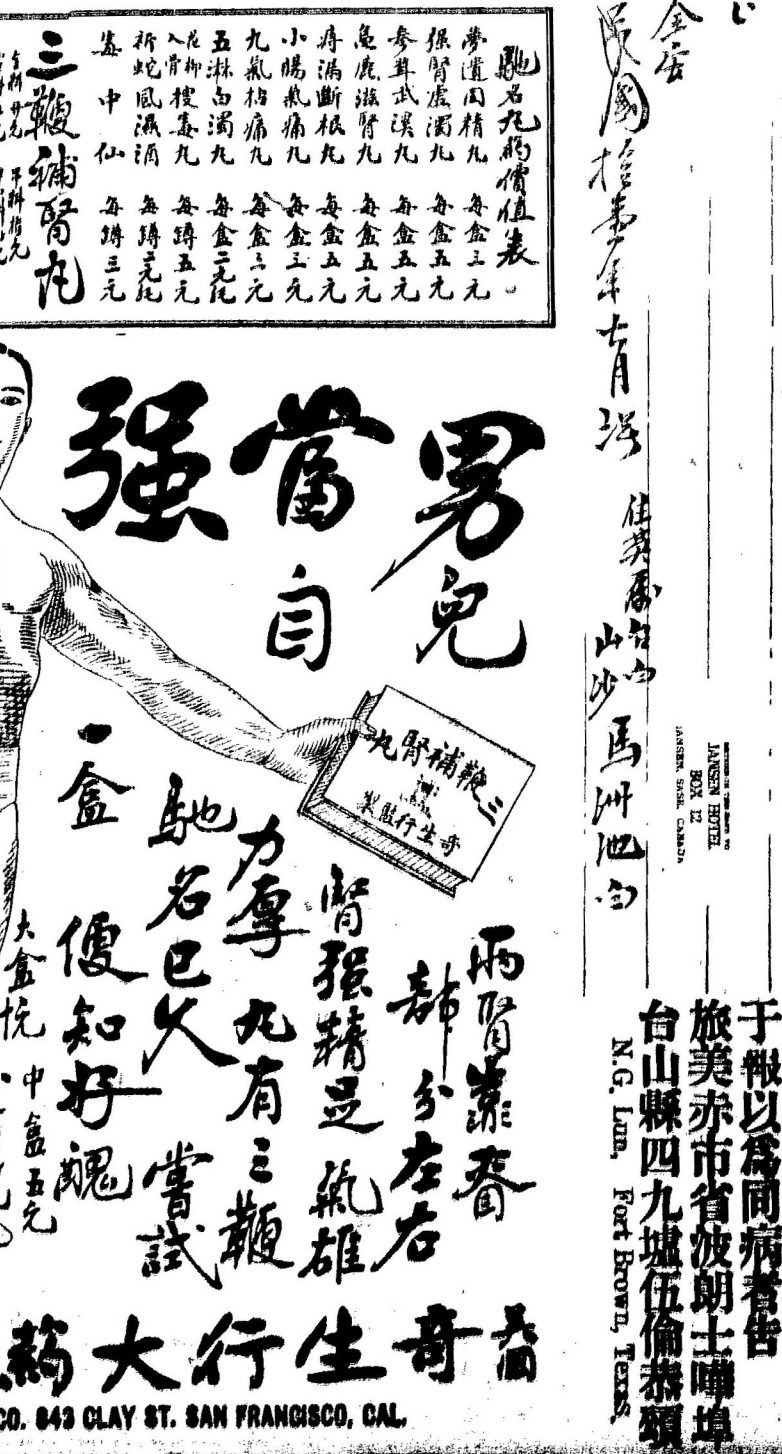 民國拾壹年十月
住英屬
馬洲
JANSEN HOTEL
BOX 12
JANSEN SASK. CANADA
于報以爲同病者告
旅美赤市省波朗士嘩埠
台山縣四九墟伍倫恭頌
N.G. Lun, Fort Brown, Texas,
馳名丸藥價值表
夢遺固精丸 每盒三元
強腎處濁丸 每盒五元
參茸武漢丸 每盒五元
龜鹿滋腎丸 每盒五元
痔漏斷根丸 每盒五元
小腸氣痛丸 每盒三元
九氣拈痛丸 每盒三元
五淋白濁丸 每盒二元
花柳入骨搜毒丸 每罇五元
祈蛇風濕酒 每罇二元
毒中仙 每罇三元
三鞭補腎丸
男兒當自强
三鞭補腎丸
奇生行監製
兩腎
部分左右
腎强精足氣雄
力厚丸有三鞭
馳名已久嘗試
一盒便知好醜
大盒
中盒五元
奇生行大藥
CO. 843 CLAY ST. SAN FRANCISCO, CAL.